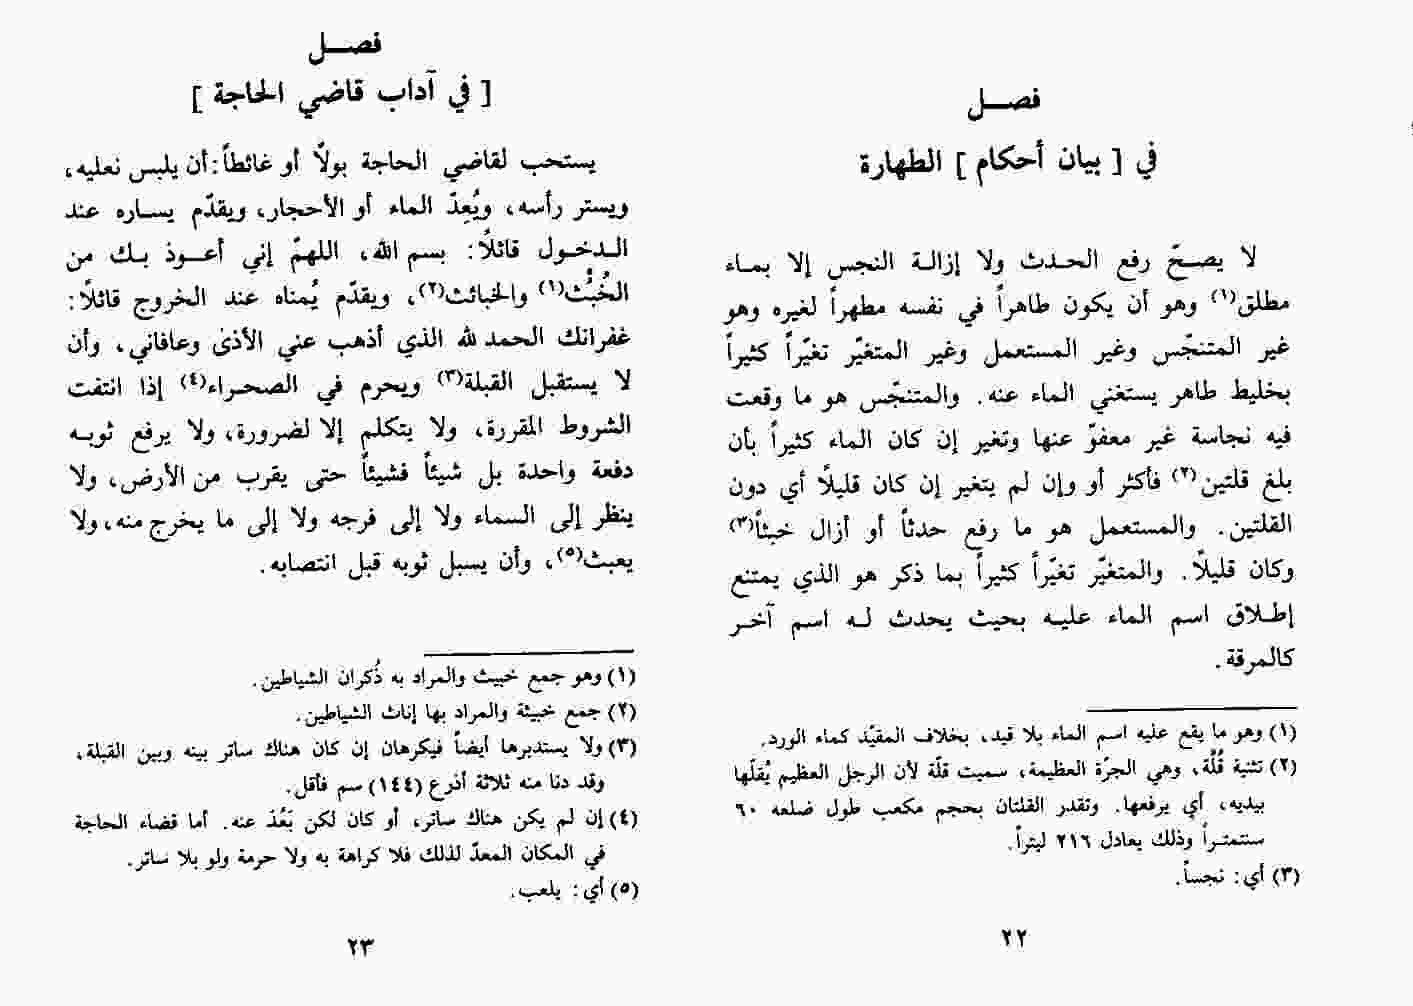 فصـــل
في [ بيان أحكام ] الطهارة
لا يصــحّ رفع الحـدث ولا إزالـة النجس إلا بمـاء
مطلق(١) وهو أن يكون طاهراً في نفسه مطهراً لغيره وهو
غير المتنجّس وغير المستعمل وغير المتغيّر تغيّراً كثيراً
بخليط طاهر يستغني الماء عنه. والمتنجّس هو ما وقعت
فيه نجاسة غير معفوّ عنها وتغير إن كان الماء كثيراً بأن
بلغ قلتين(٢) فأكثر أو وإن لم يتغير إن كان قليلًا أي دون
القلتين. والمستعمل هو ما رفع حدثاً أو أزال خبثاً(٣)
وكان قليلًا. والمتغيّر تغيّراً كثيراً بما ذكر هو الذي يمتنع
إطـلاق اسم الماء عليـه بحيث يحدث لـه اسم آخـر
كالمرقة.
(١) وهو ما يقع عليه اسم الماء بلا قيد، بخلاف المقيّد كماء الورد.
(٢) تثنية قُلَّة، وهي الجرّة العظيمة، سميت قلّة لأن الرجل العظيم يُقلّها
بيديه، أي يرفعها. وتقدر القلتان بحجم مكعب طول ضلعه ٦٠
سنتمتـراً وذلك يعادل ٢١٦ ليتراً.
(٣) أي: نجساً.
٢٢
فصـــل
[ في آداب قاضي الحاجة ]
يستحب لقاضي الحاجة بولًا أو غائطاً: أن يلبس نعليه،
ويستر رأسه، ويُعِدّ الماء أو الأحجار، ويقدّم يسـاره عند
الـدخـول قائلًا: بسم الله، اللهمّ إني أعـوذ بـك من
الخُبْث(١) والخبائث(٢)، ويقدّم يُمناه عند الخروج قائلًا:
غفرانك الحمد لله الذي أذهب عني الأذى وعافاني، وأن
لا يستقبل القبلة(٣) ويحرم في الصحـراء(٤) إذا انتفت
الشروط المقررة، ولا يتكلم إلا لضرورة، ولا يرفع ثوبـه
دفعة واحدة بل شيئاً فشيئاً حتى يقرب من الأرض، ولا
ينظر إلى السماء ولا إلى فرجه ولا إلى ما يخرج منه، ولا
يعبث(٥)، وأن يسبل ثوبه قبل انتصابه.
(١) وهو جمع خبيث والمراد به ذُكران الشياطين.
(٢) جمع خبيثة والمراد بها إناث الشياطين.
(٣) ولا يستدبرها أيضاً فيكرهان إن كان هناك ساتر بينه وبين القبلة،
وقد دنا منه ثلاثة أذرع (١٤٤) سم فأقل.
(٤) إن لم يكن هناك ساتر، أو كان لكن بَعُدَ عنه. أما قضاء الحاجة
في المكان المعدّ لذلك فلا كراهة به ولا حرمة ولو بلا ساتر.
(٥) أي: يلعب.
٢٣